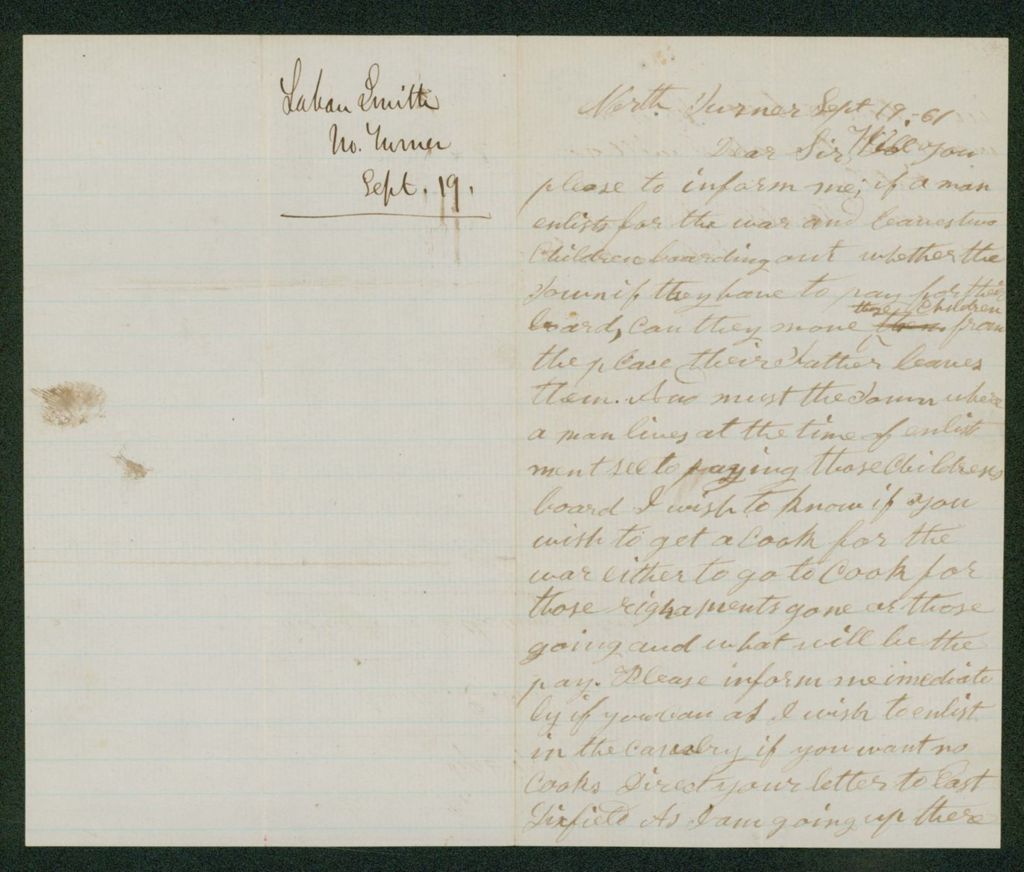 Laban Smith
No. Turner
Sept. 19.
North Turner Sept 19,-61
Dear Sir, Will you
please to inform me; if a man
enlists for the war and leaves two
Children boarding out whether the
Town if they have to pay for their
board, can they move them those Children from
the place their Father leaves
them. And must the Town where
a man lives at the time of enlist
ment see to paying those Childrens
board I wish to know if you
wish to get a cook for the
war either to go to cook for
those righaments gone or those
going and what will be the
pay. Please inform me imediate
ly if you can as I wish to enlist
in the cavelry if you want no
Cooks Direct your letter to East
Dixfield As I am going up there